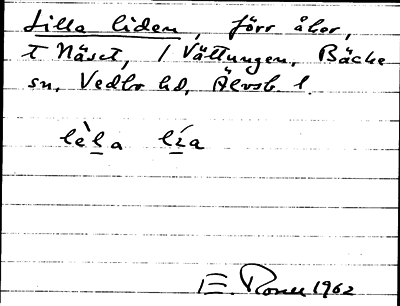 Lilla liden, förr åker,
t Näset, / Vättungen, Bäcke
sn, Vedbo hd, Älvsb l.
lèl̲a lí̲a
E. 1962